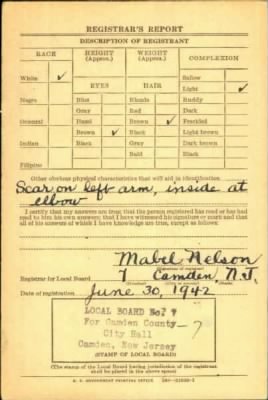 REGISTRAR'S REPORT
DESCRIPTION OF REGISTRANT
RACE HEIGHT (Approx.) WEIGHT (Approx.) COMPLEXION
White ✓ Sallow
EYES HAIR Light ✓
Negro Blue Blonde Ruddy
Gray Red Dark
Oriental Hazel Brown ✓ Freckled
Brown ✓ Black Light brown
Indian Black Gray Dark brown
Bald Black
Filipino
Other obvious physical characteristics that will aid in identification.
Scar on left arm, inside at
elbow
I certify that my answers are true; that the person registered has read or has had
read to him his own answers; that I have witnessed his signature or mark and that
all of his answers of which I have knowledge are true, except as follows:
Mabel Nelson
(Signature of registrar)
Registrar for Local Board 7 Camden, N.J.
Date of registration June 30, 1942
LOCAL BOARD No. 7
For Camden County 7
City Hall
Camden, New Jersey
(STAMP OF LOCAL BOARD)
(The stamp of the Local Board having jurisdiction of the registrant
shall be placed in the above space)
U. S. GOVERNMENT PRINTING OFFICE